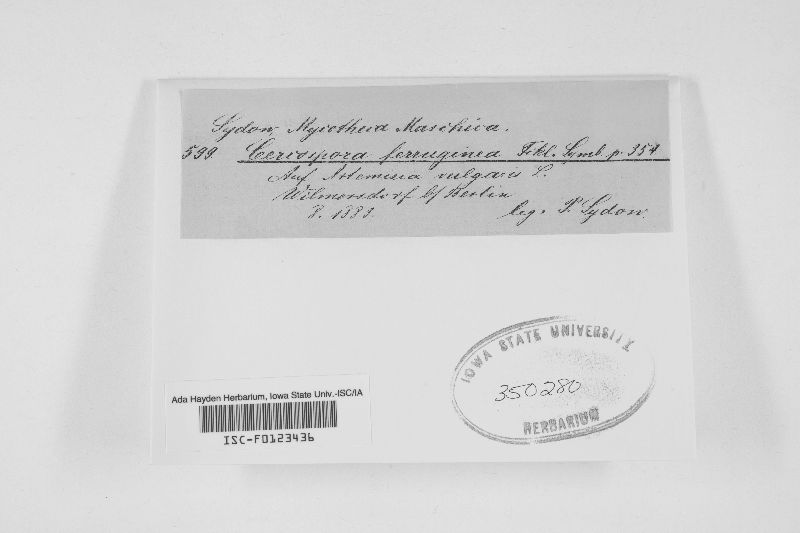 Sydow, Mycotheca Marchica.
599. Cercospora ferruginea Fckl. Symb. p. 354
Auf Artemisia vulgaris L.
Wilmersdorf b/ Berlin
8. 1883. leg. P. Sydow.
IOWA STATE UNIVERSITY
350280
HERBARIUM
Ada Hayden Herbarium, Iowa State Univ.-ISC/IA
ISC-F0123436